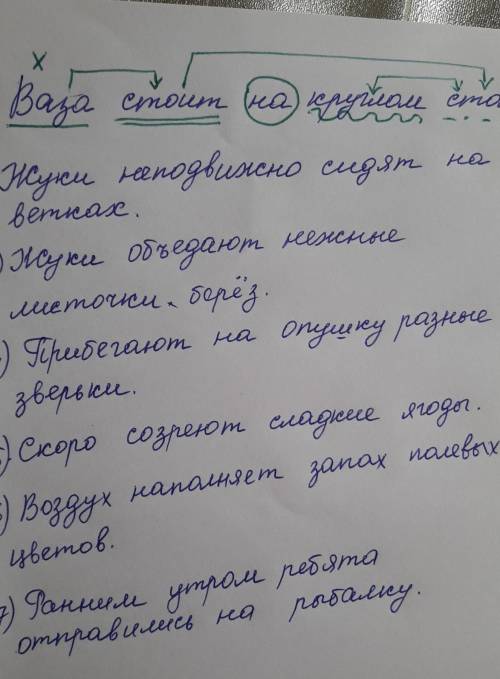 х
Ваза стоит на круглом сто
Жуки неподвижно сидят на
ветках.
) Жуки объедают нежные
листочки берёз.
) Прибегают на опушку разные
зверьки.
) Скоро созреют сладкие ягоды.
) Воздух наполняет запах полевых
цветов.
7) Ранним утром ребята
отправились на рыбалку.